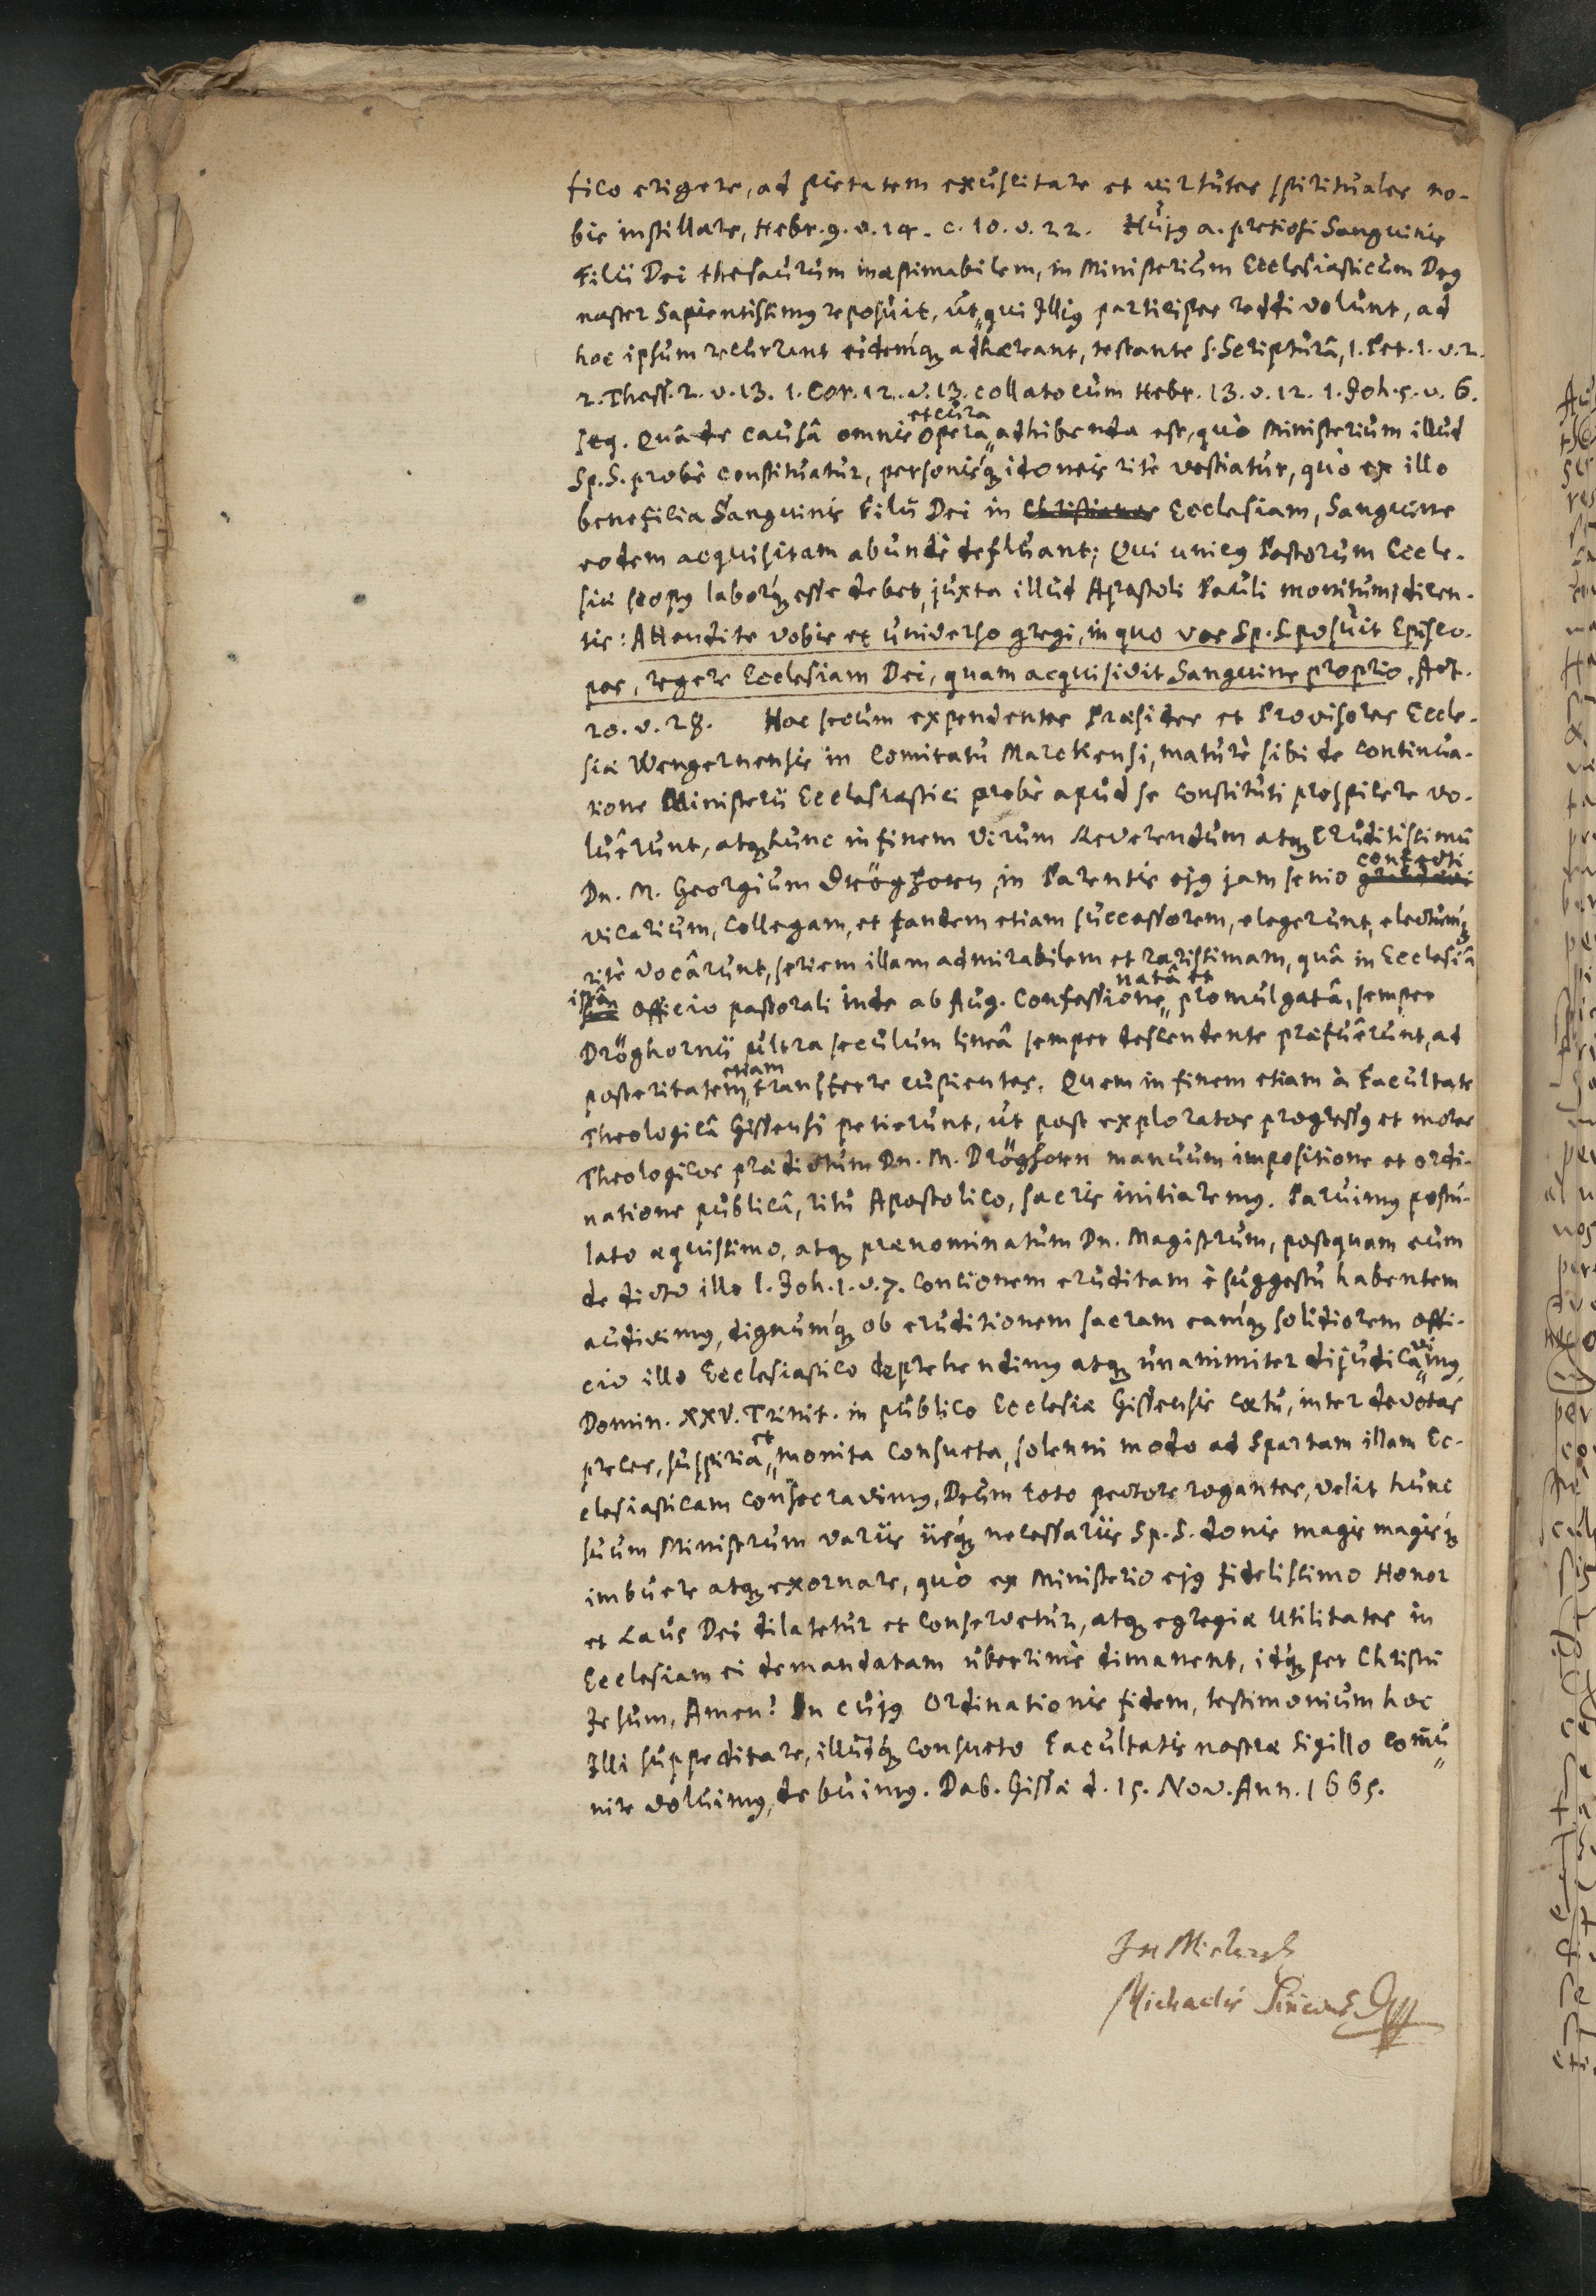 fico erigere, ad pietatem exuscitare et virtutes spirituales no-
bis instillare, Hebr. 9. v. 14. c. 10. v. 22. Hujꝰ a. pretiosi Sanguinis
Filii Dei thesaurum inæstimabilem, in Ministerium Ecclesiasticum Deꝰ
noster Sapientissimꝰ reposuit, ut, qui Illiꝰ participes reddi volunt, ad
hoc ipsum recurrant eidemq́ꝫ adhæreant, testante S. Scripturâ, 1. Pet. 1. v. 2.
2. Thess. 2. v. 13. 1. Cor. 12. v. 13. collato cum Hebr. 13. v. 12. 1. Joh. 5. v. 6.
seq. Quâ de causâ omnis opera et cura adhibenda est, quò Ministerium illud
Sp. S. probè constituatur, personisq́ꝫ idoneis ritè vestiatur, quò ex illo
beneficia Sanguinis Filii Dei in Christianos Ecclesiam, Sanguine
eodem acquisitam abundè defluant; Qui unicꝰ Pastorum Eccle-
siæ scopꝰ laborúmqꝫ esse debet, juxta illud Apostoli Pauli monitum, dicen-
tis: Attendite vobis et universo gregi, in quo vos Sp. S. posuit Episco-
pos, regere Ecclesiam Dei, quam acquisivit Sanguine proprio, Act.
20. v. 28. Hoc secum expendentes Præsides et Provisores Eccle-
siæ Wengernensis in Comitatu Marckensi, maturè sibi de continua-
tione Ministerii Ecclesiastici probè apud se constituti prospicere vo-
luêrunt, atqꝫ hunc in finem Virum Reverendum atqꝫ Eruditissimū
Dn. M. Georgium Dröghorn, in Parentis ejꝰ jam senio grandævi confecti
vicarium, Collegam, et tandem etiam successorem, elegerunt, electumq́ꝫ
ritè vocârunt, seriem illam admirabilem et rarissimam, quâ in Ecclesiâ
istâ officio pastorali inde ab Aug. Confessione natâ et promulgatâ, semper
Dröghornii ultra seculum lineâ semper descendente præfuêrunt, ad
posteritatem etiam transferre cupientes. Quem in finem etiam à Facultate
Theologicâ Gissensi petierunt, ut post exploratos progressꝰ et mores
Theologicos prædictum Dn. M. Dröghorn manuum impositione et ordi-
natione publicâ, ritu Apostolico, sacris initiaremꝰ. Paruimꝰ postu-
lato æquissimo, atqꝫ prænominatum Dn. Magistrum, postquam eum
de dicto illo 1. Joh. 1. v. 7. concionem eruditam è suggestu habentem
audivimꝰ, dignumq́ꝫ ob eruditionem sacram eamq́ꝫ solidiorem offi-
cio illo Ecclesiastico deprehendimꝰ atqꝫ unanimiter dijudicavimꝰ,
Domin. XXV. Trinit. in publico Ecclesiæ Gissensis cœtu, inter devotas
preces, suspiria et monita consueta, solenni modo ad Spartam illam Ec-
clesiasticam consecravimꝰ, Deum toto pectore rogantes, velit hunc
suum Ministrum variis iisq́ꝫ necessariis Sp. S. donis magis magisq́ꝫ
imbuere atqꝫ exornare, quò ex Ministerio ejꝰ fidelissimo Honor
et Laus Dei dilatetur et conservetur, atqꝫ egregiæ Utilitates in
Ecclesiam ei demandatam uberrimè dimanent, idq́ꝫ per Christū
Jesum, Amen! In cujꝰ Ordinationis fidem, testimonium hoc
Illi suppeditare, illudq́ꝫ consueto Facultatis nostræ Sigillo com̄u
nire voluimꝰ, debuimꝰ. Dab. Gissæ d. 15. Nov. Ann. 1665.
Michaelis